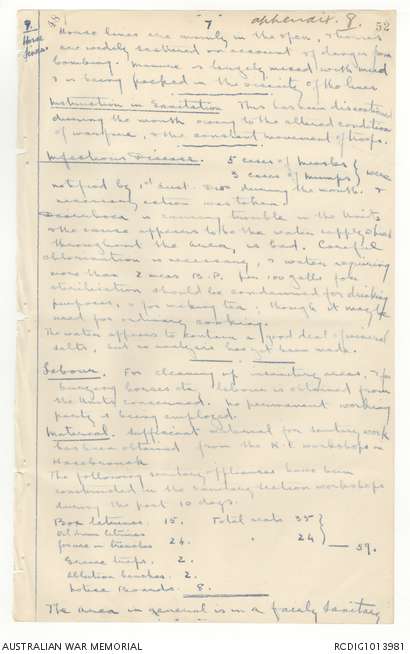 7
appendix 8.
52
9.
Horse
Horse lines are mainly in the open, & horses
are widely scattered on account of danger from
bombing. Manure is largely mixed with mud
& is being packed in the vicinity of the lines
Instruction in Sanitation This has been discontinued
during the month owing to the altered condition
of warfare, & the constant movement of troops.
Infectious Disease. 5 cases of measles } were
3 cases of mumps }
notified by 1st Aust. Div during the month. &
necessary action was taken.
Diarrhoea is causing trouble in the Units
& the cause appears to be the water supply which
throughout the area, is bad. Careful
chlorination is necessary, & water requiring
more than 2 meas B.P. per 100 galls for
sterilisation should be condemned for drinking
purposes, & for making tea; though it may be
used for ordinary cooking.
The water appears to contain a good deal of mineral
salts, but no analysis has yet been made.
Labour. For cleaning of insanitary areas, & for
burying horses etc, labour is obtained from
the Units concerned. No permanent working
party is being employed.
Material. Sufficient material for sanitary work
has been obtained from the R.E workshops in
Hazebrouck
The following sanitary appliances have been
constructed in the sanitary section workshops
during the past 10 days.
Box latrines 15. Total seats 35 }
latrines
for use in trenches 24. " 24 } — 59.
Grease traps. 2.
Ablution benches. 2.
Notice Boards. 8.
The area in general is in a fairly sanitary
AUSTRALIAN WAR MEMORIAL
RCDIG1013981